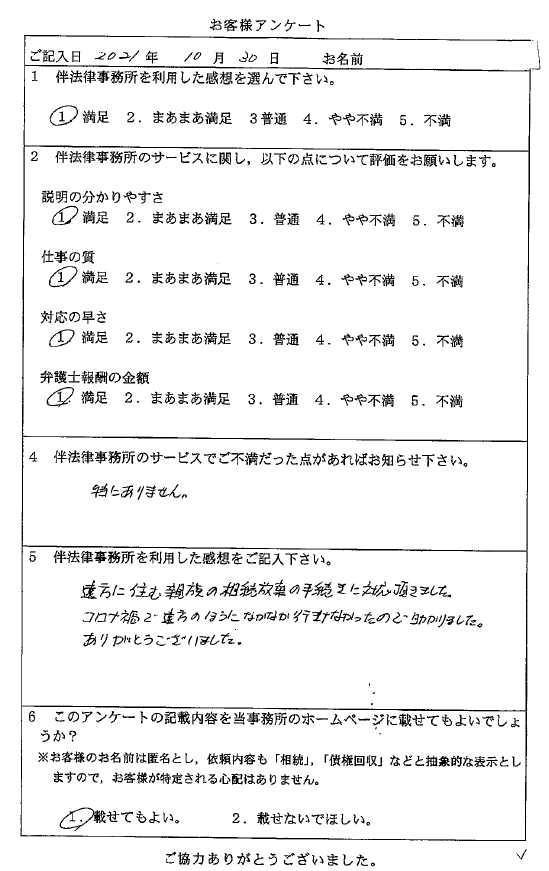 お客様アンケート
ご記入日 2021年 10月 30日 お名前
1 伴法律事務所を利用した感想を選んで下さい。
1 満足 2．まあまあ満足 3普通 4．やや不満 5．不満
2 伴法律事務所のサービスに関し，以下の点について評価をお願いします。
説明の分かりやすさ
1. 満足 2．まあまあ満足 3．普通 4．やや不満 5．不満
仕事の質
1 満足 2．まあまあ満足 3．普通 4．やや不満 5．不満
対応の早さ
1 満足 2．まあまあ満足 3．普通 4．やや不満 5．不満
弁護士報酬の金額
1. 満足 2．まあまあ満足 3．普通 4．やや不満 5．不満
4 伴法律事務所のサービスでご不満だった点があればお知らせ下さい。
特にありません。
5 伴法律事務所を利用した感想をご記入下さい。
遠方に住む親族の相続放棄の手続きに対応頂きました。
コロナ禍で遠方のほうになかなか行けなかったので助かりました。
ありがとうございました。
6 このアンケートの記載内容を当事務所のホームページに載せてもよいでしょ
うか？
※お客様のお名前は匿名とし，依頼内容も「相続」，「債権回収」などと抽象的な表示とし
ますので，お客様が特定される心配はありません。
1. 載せてもよい。 2．載せないでほしい。
ご協力ありがとうございました。